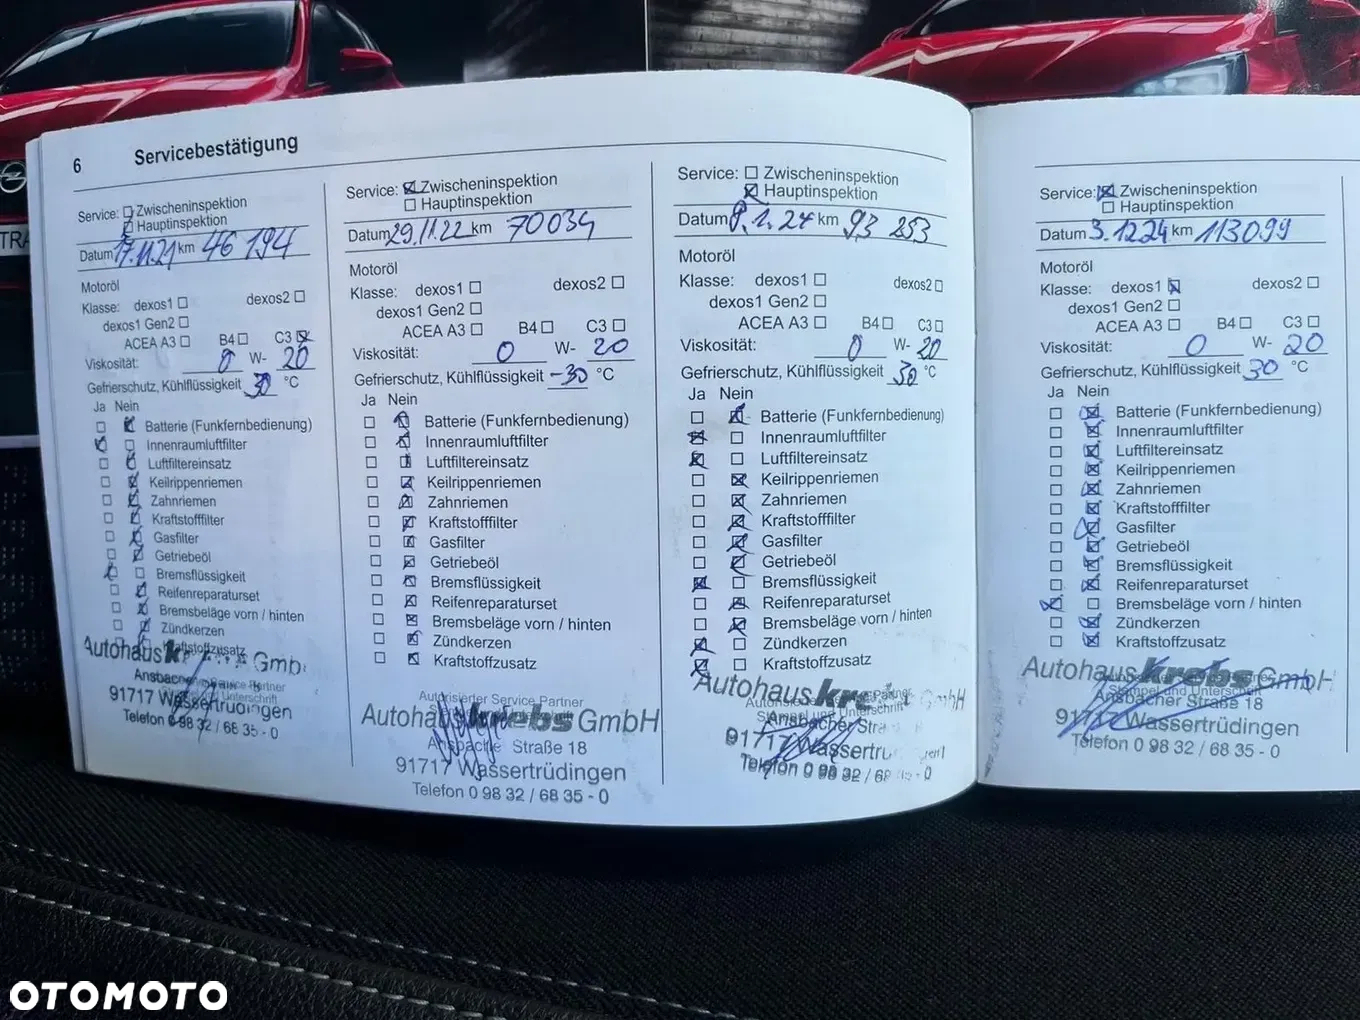 6 Servicebestätigung
Service: Zwischeninspektion
Hauptinspektion
Datum 17.11.21 km 46 194
Motoröl
Klasse: dexos1 dexos2
dexos1 Gen2
ACEA A3 B4 C3
Viskosität: 0 W- 20
Gefrierschutz, Kühlflüssigkeit 30 °C
Ja Nein
Batterie (Funkfernbedienung)
Innenraumluftfilter
Luftfiltereinsatz
Keilrippenriemen
Zahnriemen
Kraftstofffilter
Gasfilter
Getriebeöl
Bremsflüssigkeit
Reifenreparaturset
Bremsbeläge vorn / hinten
Zündkerzen
Kraftstoffzusatz
Autohaus
Ansbacher
91717 Wassertrüdingen
Telefon 0 98 32 / 68 35 - 0
Service: Zwischeninspektion
Hauptinspektion
Datum 29.11.22 km 70034
Motoröl
Klasse: dexos1 dexos2
dexos1 Gen2
ACEA A3 B4 C3
Viskosität: 0 W- 20
Gefrierschutz, Kühlflüssigkeit -30 °C
Ja Nein
Batterie (Funkfernbedienung)
Innenraumluftfilter
Luftfiltereinsatz
Keilrippenriemen
Zahnriemen
Kraftstofffilter
Gasfilter
Getriebeöl
Bremsflüssigkeit
Reifenreparaturset
Bremsbeläge vorn / hinten
Zündkerzen
Kraftstoffzusatz
Autorisierter Service Partner
Autohaus krebs GmbH
Ansbacher Straße 18
91717 Wassertrüdingen
Telefon 0 98 32 / 68 35 - 0
Service: Zwischeninspektion
Hauptinspektion
Datum 8.1.24 km 93 253
Motoröl
Klasse: dexos1 dexos2
dexos1 Gen2
ACEA A3 B4 C3
Viskosität: 0 W- 20
Gefrierschutz, Kühlflüssigkeit 30 °C
Ja Nein
Batterie (Funkfernbedienung)
Innenraumluftfilter
Luftfiltereinsatz
Keilrippenriemen
Zahnriemen
Kraftstofffilter
Gasfilter
Getriebeöl
Bremsflüssigkeit
Reifenreparaturset
Bremsbeläge vorn / hinten
Zündkerzen
Kraftstoffzusatz
Autohaus
Ansbacher
91717
Telefon 0 98 32 /
Service: Zwischeninspektion
Hauptinspektion
Datum 3.12.24 km 113099
Motoröl
Klasse: dexos1 dexos2
dexos1 Gen2
ACEA A3 B4 C3
Viskosität: 0 W- 20
Gefrierschutz, Kühlflüssigkeit 30 °C
Ja Nein
Batterie (Funkfernbedienung)
Innenraumluftfilter
Luftfiltereinsatz
Keilrippenriemen
Zahnriemen
Kraftstofffilter
Gasfilter
Getriebeöl
Bremsflüssigkeit
Reifenreparaturset
Bremsbeläge vorn / hinten
Zündkerzen
Kraftstoffzusatz
Autohaus krebs GmbH
Stempel und Unterschrift
Ansbacher Straße 18
91717 Wassertrüdingen
Telefon 0 98 32 / 68 35 - 0
OTOMOTO